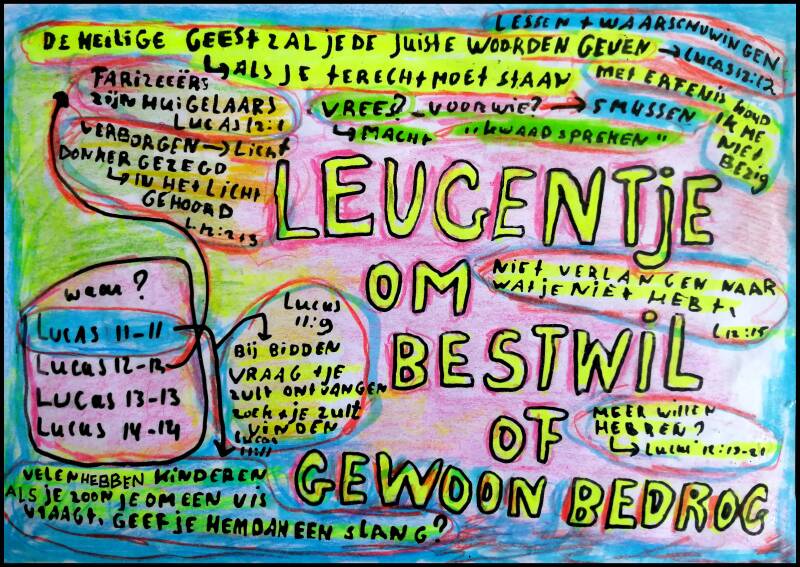 LESSEN + WAARSCHUWINGEN
DE HEILIGE GEEST ZAL JE DE JUISTE WOORDEN GEVEN → LUCAS 12:12
↳ ALS JE TERECHT MOET STAAN
MET ERFENIS HOUD
IK ME
NIET
BEZIG
FARIZEEËRS
ZIJN HUIGELAARS
LUCAS 12:1
VREES? VOOR WIE? → SMUSSEN
↳ MACHT "KWAADSPREKEN"
VERBORGEN → LICHT
DONKER GEZEGD
↳ IN HET LICHT
GEHOORD
L12:2+3
LEUGENTJE
OM
BESTWIL
OF
GEWOON BEDROG
NIET VERLANGEN NAAR
WAT JE NIET HEBT,
L12:15
waar?
LUCAS 11-11
LUCAS 12-12
LUCAS 13-13
LUCAS 14-14
LUCAS
11:9
BIJ BIDDEN
VRAAG + JE
ZULT ONTVANGEN
ZOEK + JE ZULT
VINDEN
LUCAS
11:11
MEER WILLEN
HEBBEN?
↳ LUCAS
VELEN HEBBEN KINDEREN
ALS JE ZOON JE OM EEN VIS
VRAAGT, GEEF JE HEM DAN EEN SLANG?